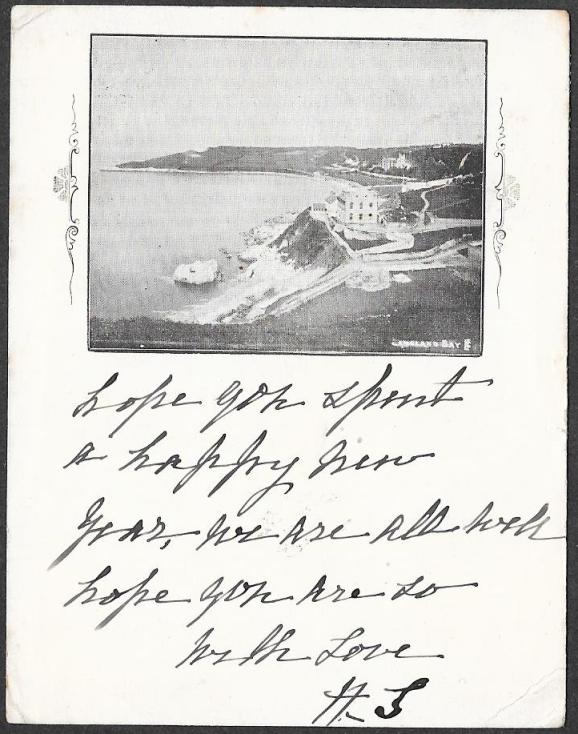 LANGLAND BAY
hope you spent
a happy new
Year, we are all well
hope you are so
with Love
H. S